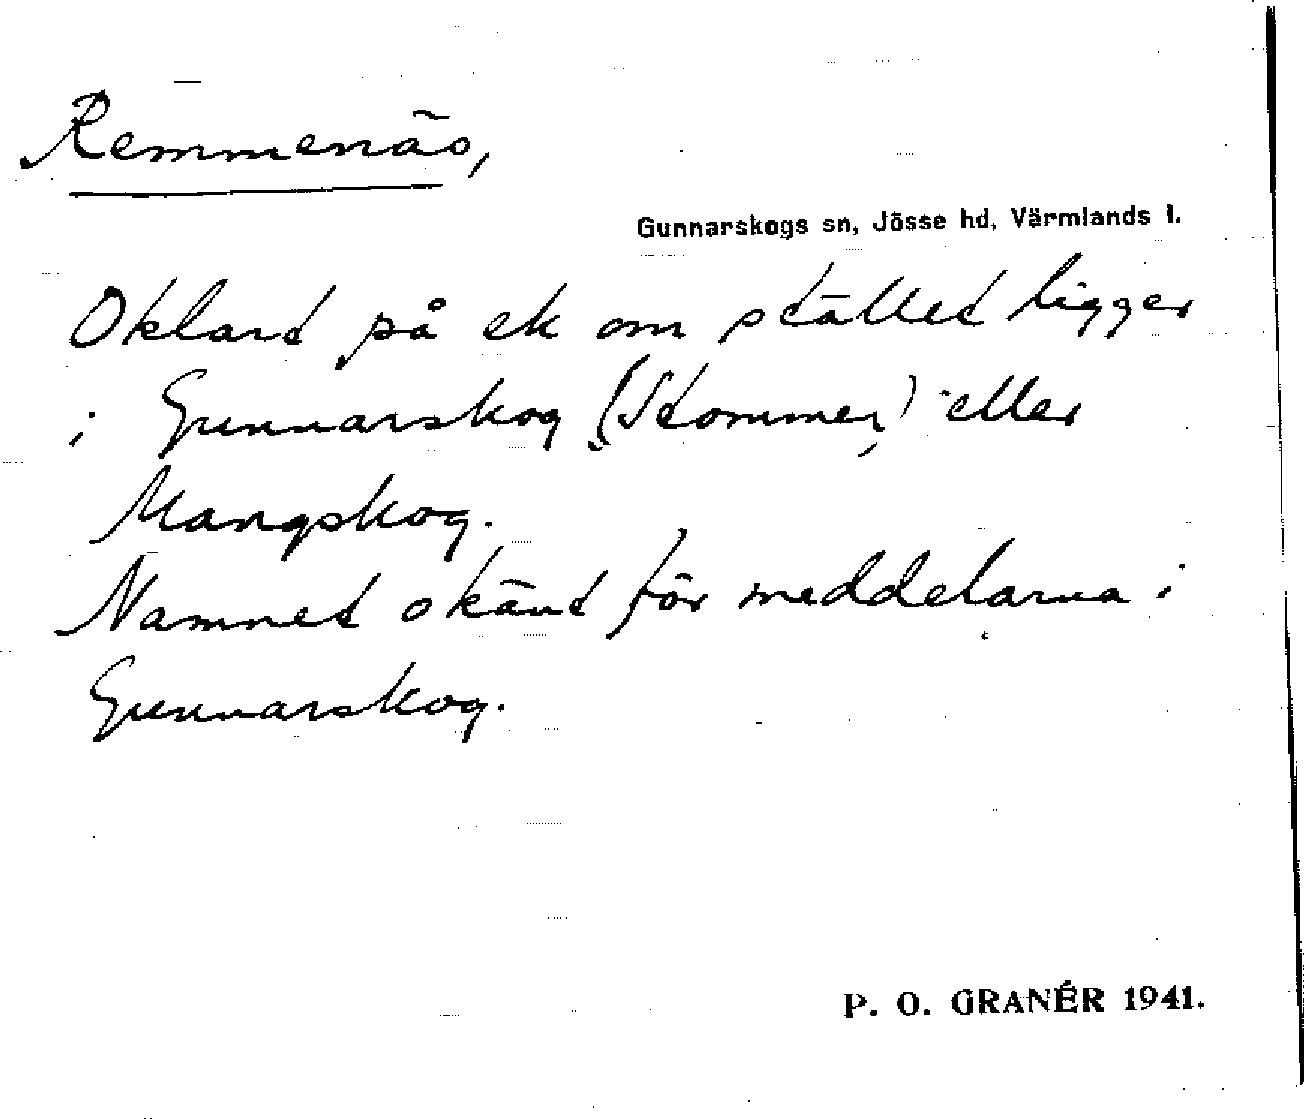 Remmenäs,
Gunnarskogs sn, Jösse hd, Värmlands l.
Oklart på ek om stället ligger
i Gunnarskog (Stommen) eller
Mangskog.
Namnet okänt för meddelarna i
Gunnarskog.
P. O. GRANÉR 1941.